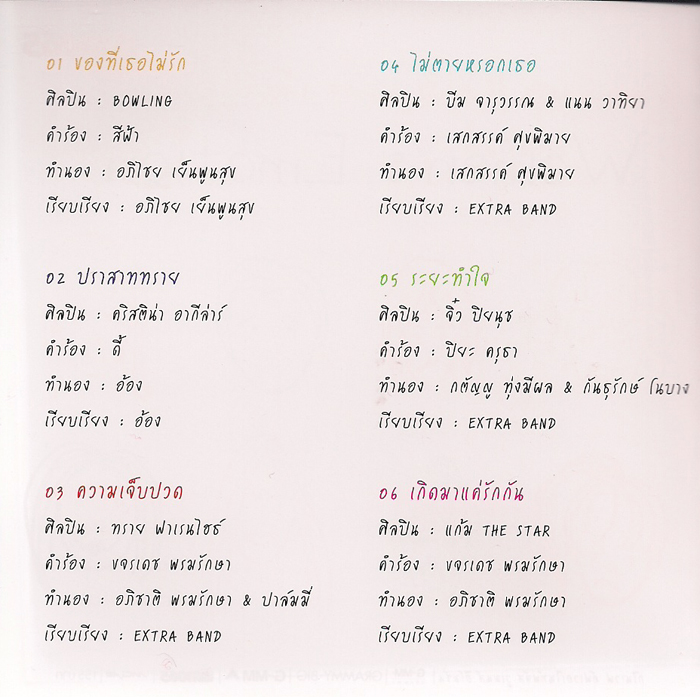 01 ของที่เธอไม่รัก
ศิลปิน : BOWLING
คำร้อง : สีฟ้า
ทำนอง : อภิไชย เย็นพูนสุข
เรียบเรียง : อภิไชย เย็นพูนสุข
02 ปราสาททราย
ศิลปิน : คริสติน่า อากีล่าร์
คำร้อง : ดี้
ทำนอง : อ้อง
เรียบเรียง : อ้อง
03 ความเจ็บปวด
ศิลปิน : ทราย ฟาเรนไฮธ์
คำร้อง : ขจรเดช พรมรักษา
ทำนอง : อภิชาติ พรมรักษา & ปาล์มมี่
เรียบเรียง : EXTRA BAND
04 ไม่ตายหรอกเธอ
ศิลปิน : บีม จารุวรรณ & แนน วาทิยา
คำร้อง : เสกสรรค์ ศุขพิมาย
ทำนอง : เสกสรรค์ ศุขพิมาย
เรียบเรียง : EXTRA BAND
05 ระยะทำใจ
ศิลปิน : จิ๋ว ปิยนุช
คำร้อง : ปิยะ ครุธา
ทำนอง : กตัญญู ทุ่งมีผล & กันธุรักษ์ โนบาง
เรียบเรียง : EXTRA BAND
06 เกิดมาแค่รักกัน
ศิลปิน : แก้ม THE STAR
คำร้อง : ขจรเดช พรมรักษา
ทำนอง : อภิชาติ พรมรักษา
เรียบเรียง : EXTRA BAND